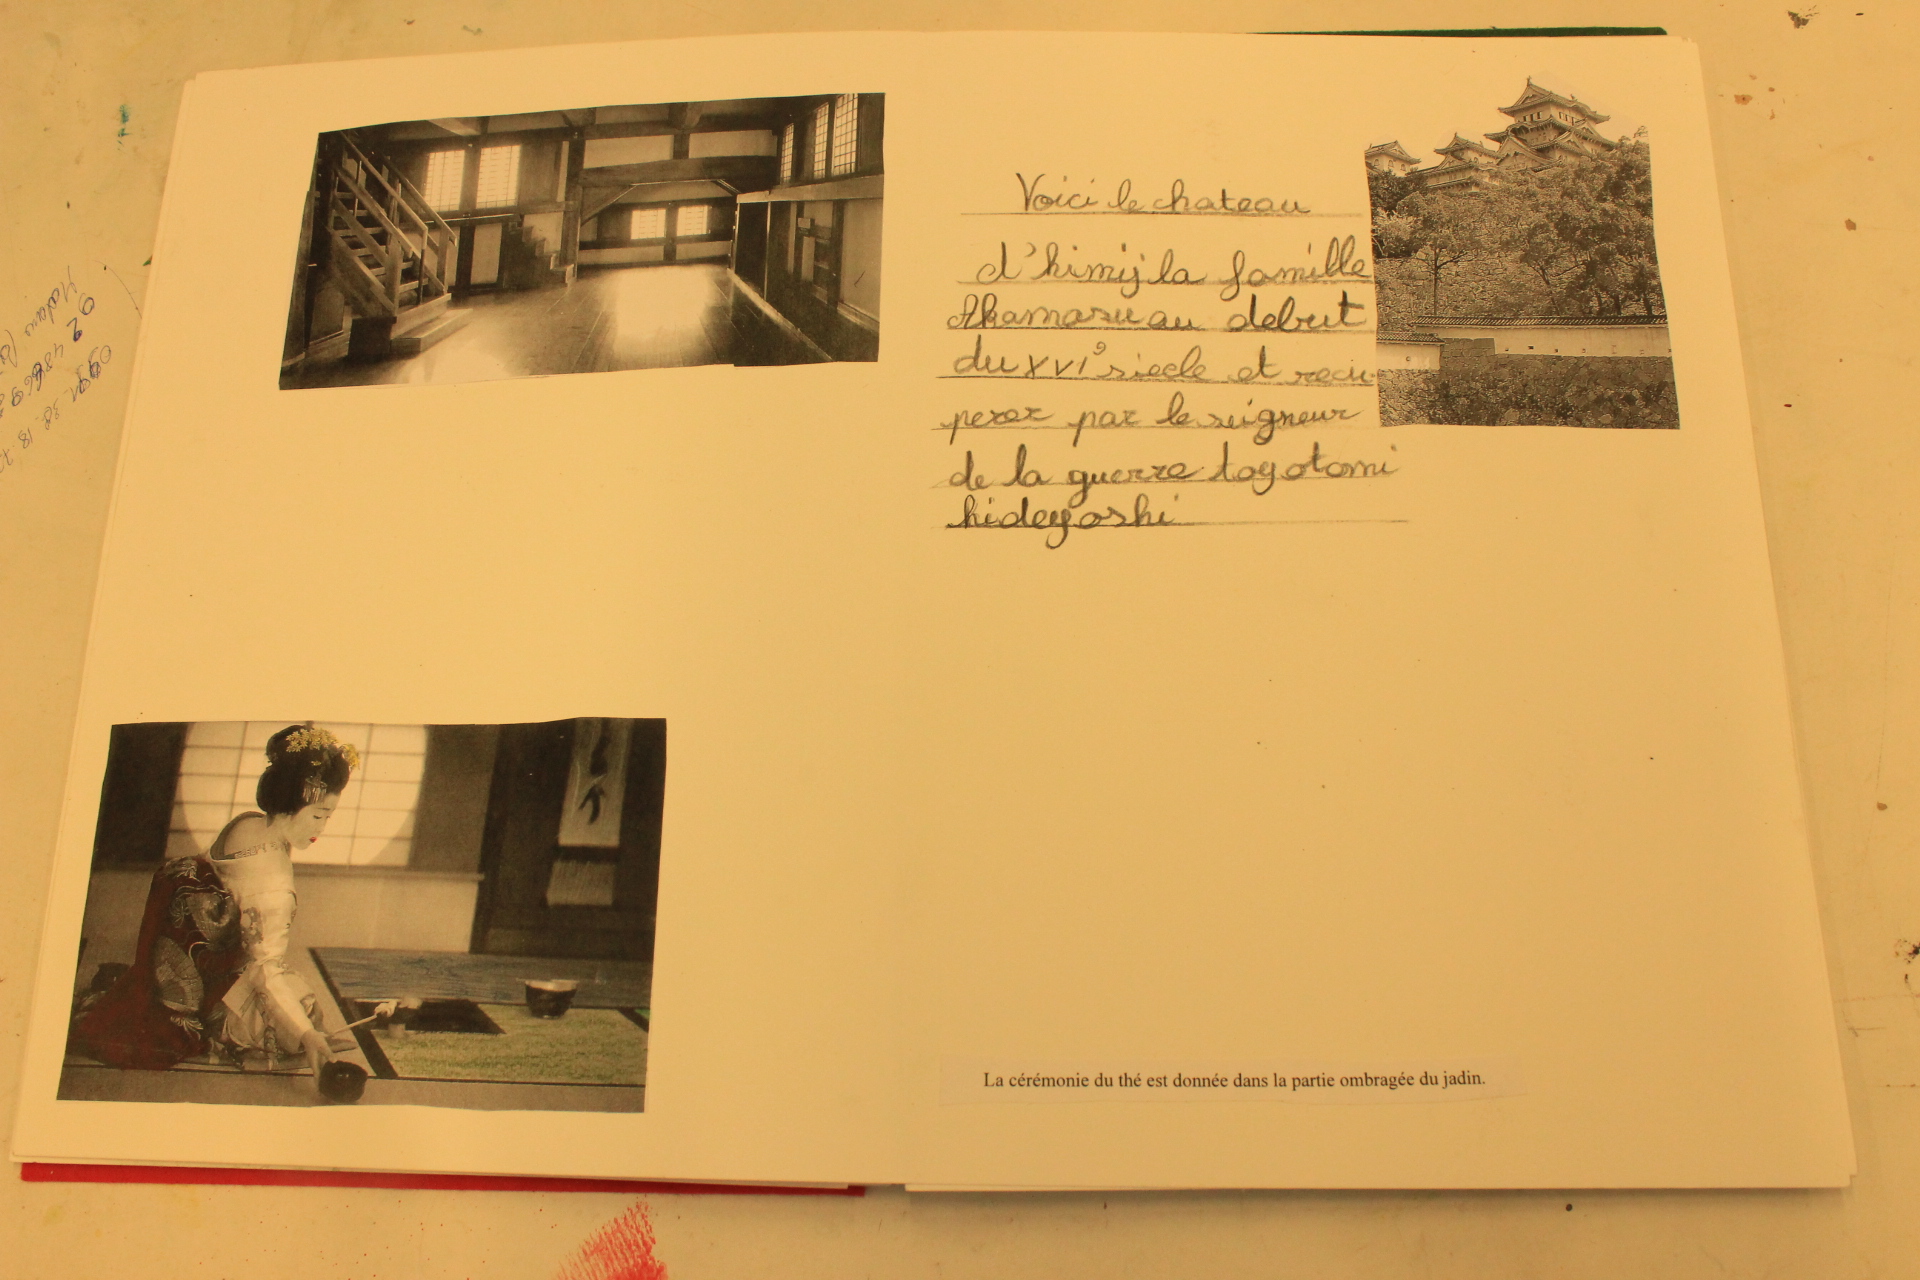 Voici le chateau
d'himij la famille
Akamasu au debut
du XVIe siecle et recu-
perer par le seigneur
de la guerre toyotomi
hideyoshi
La cérémonie du thé est donnée dans la partie ombragée du jadin.